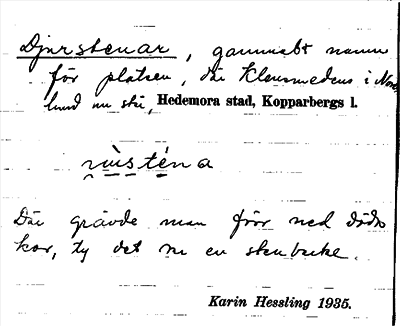 Djurstenar, gammalt namn
för platsen, där Klensmedens i Nord-
lund nu står, Hedemora stad, Kopparbergs l.
Där grävde man förr ned döda
kor, ty det är en stenbacke.
Karin Hessling 1935.